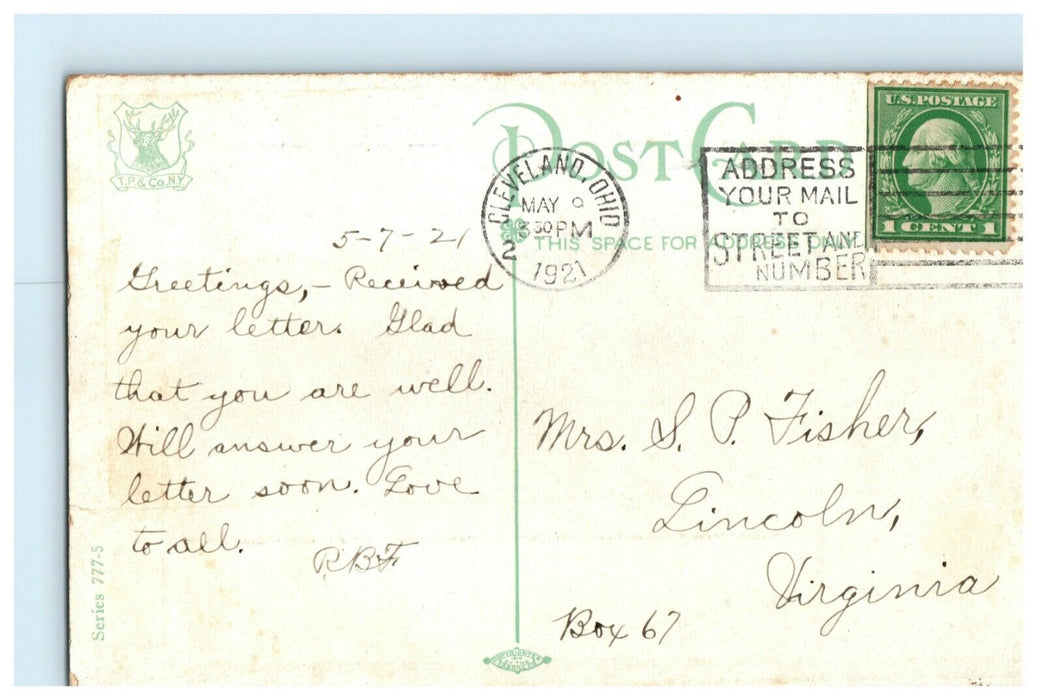 T.P.& Co. N.Y.
POST CARD
U.S. POSTAGE
1 CENT 1
CLEVELAND, OHIO
MAY 9
3 30 PM
2
1921
ADDRESS
YOUR MAIL
TO
STREET AND
NUMBER
THIS SPACE FOR ADDRESS ONLY
5-7-21
Greetings,- Received
your letter. Glad
that you are well.
Will answer your
letter soon. Love
to all.
RBF
Mrs. S. P. Fisher,
Lincoln,
Virginia
Box 67
Series 777-5